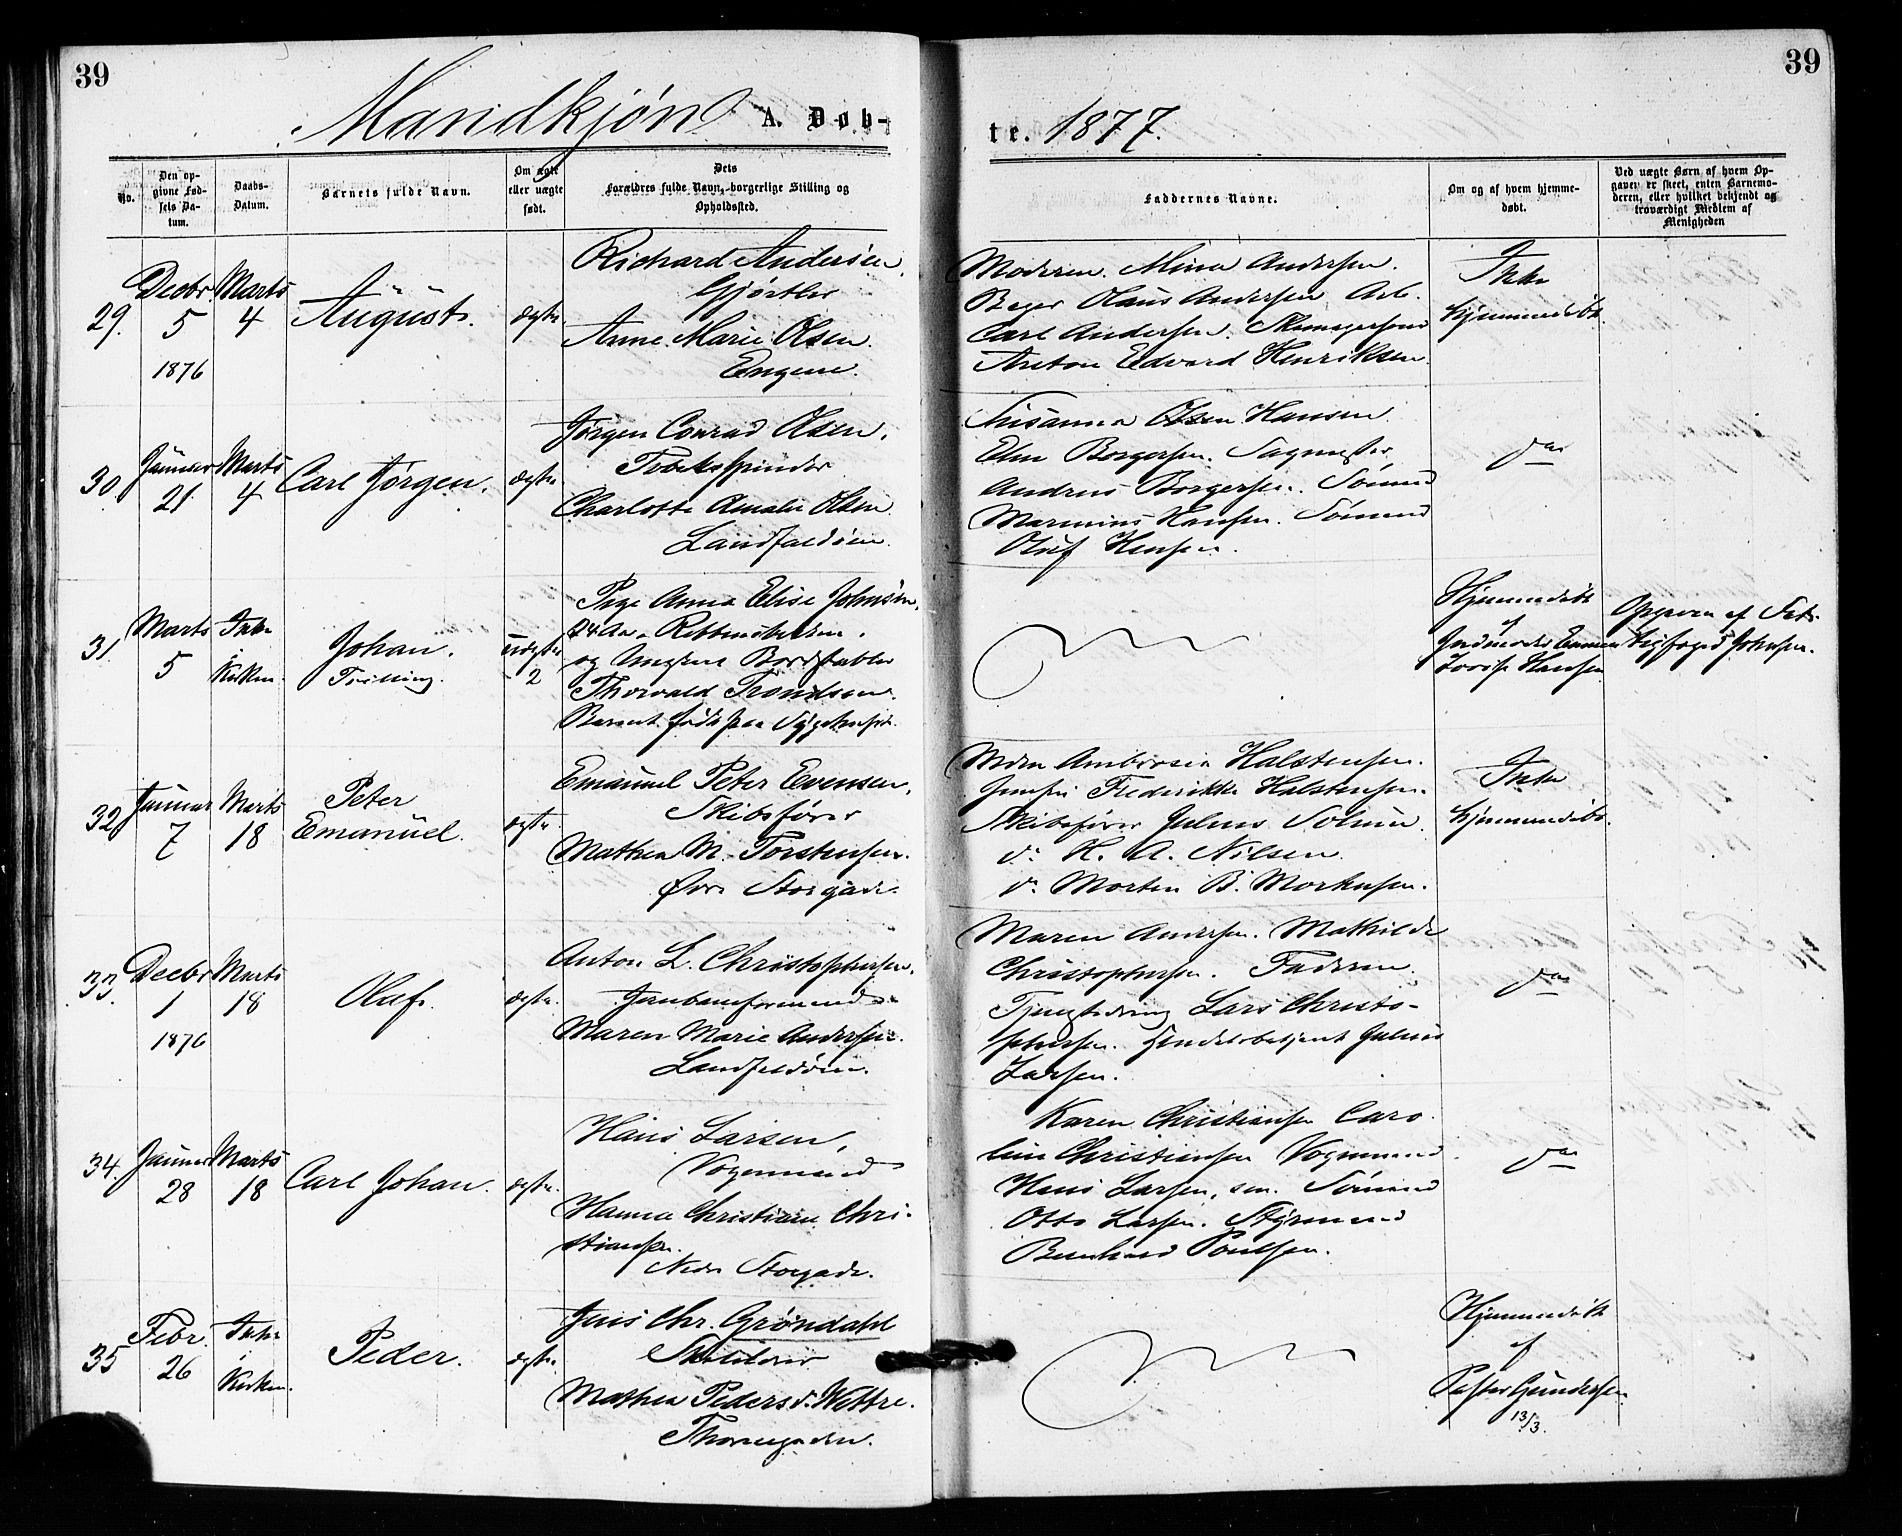 39
39
Mandkjøn A. Døb-
te. 1877.
No.
Den op-
givne Fød-
sels Da-
tum.
Daabs-
Datum.
Barnets fulde Navn.
Om ægte
eller uægte
født.
Dets
Forældres fulde Navn, borgerlige Stilling og
Opholdssted.
Faddernes Navne.
Om og af hvem hjemme-
døbt.
Ved uægte Børn af hvem Op-
gaven er skeet, enten Barnemo-
deren, eller hvilket bekjendt og
troværdigt Medlem af
Menigheden
29.
Decbr
5
1876
Marts
4
August.
ægte.
Richard Andersen,
Gjørtler
Anne Marie Olsen.
Engene.
Moderen. Mina Andersen.
Bager Olaus Andersen Arb.
Carl Andersen. Skomagersvend
Anton Edvard Henriksen.
Ikke
hjemmedøbt.
30
Januar
21
Marts
4
Carl Jørgen.
ægte.
Jørgen Conrad Olsen,
Tobaksspinder
Charlotte Amalie Olsen
Landfaldøen.
Susanna Olsen Hansen
Elen Borgersen. Sagmester
Andreas Borgersen. Sømand
Marinius Hansen. Sømand
Oluf Hansen.
do
31
Marts
5
Ikke
i
Kirken.
Johan.
Tvilling.
uægte
2
Pige Anna Elise Johnsen,
24 Aar
og Ungkarl Bordstabler
Thorvald Trondsen.
Barnet født paa Sygehuset.
Hjemmedøbt
af
Jordmoder
Lovise Hansen
Opgaven af
Johnsen.
32
Januar
7
Marts
18
Peter
Emanuel.
ægte.
Emanuel Peter Evensen,
Skibsfører
Mathea M. Torstensen.
Øvre Storgade.
Moren Ambrosia Halstensen.
Jomfru Frederikke Halstensen.
Skibsfører Julius Solum.
do H. A. Nilsen.
do Morten B. Morkusen.
Ikke
hjemmedøbt.
33.
Decbr
1
1876
Marts
18
Olaf.
ægte.
Anton L. Christophersen,
Jernbaneformand
Maren Marie Andersen.
Landfaldøen.
Maren Andersen. Mathilde
Christophersen. Faderen.
Lars Christo-
phersen. Handelsbetjent Julius
Larsen.
do
34.
Januar
28
Marts
18
Carl Johan.
ægte.
Hans Larsen,
Vognmand
Hanna Christiane Chri-
stiansen.
Nedre Storgade.
Karen Christiansen Caro
line Christiansen Vognmand
Hans Larsen, sen. Sømand
Otto Larsen. Styrmand
Bernhard Poulsen.
do
35
Febr.
26
Ikke
i
Kirken.
Peder.
ægte.
Jens Chr. Grøndahl
Skolelærer
Mathea Pedersd. Wettre.
Thornegaden.
Hjemmedøbt
af
Pastor Gundersen
13/3.